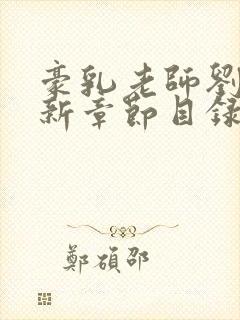 豪乳老師劉
新章節目錄
鄭碩邵